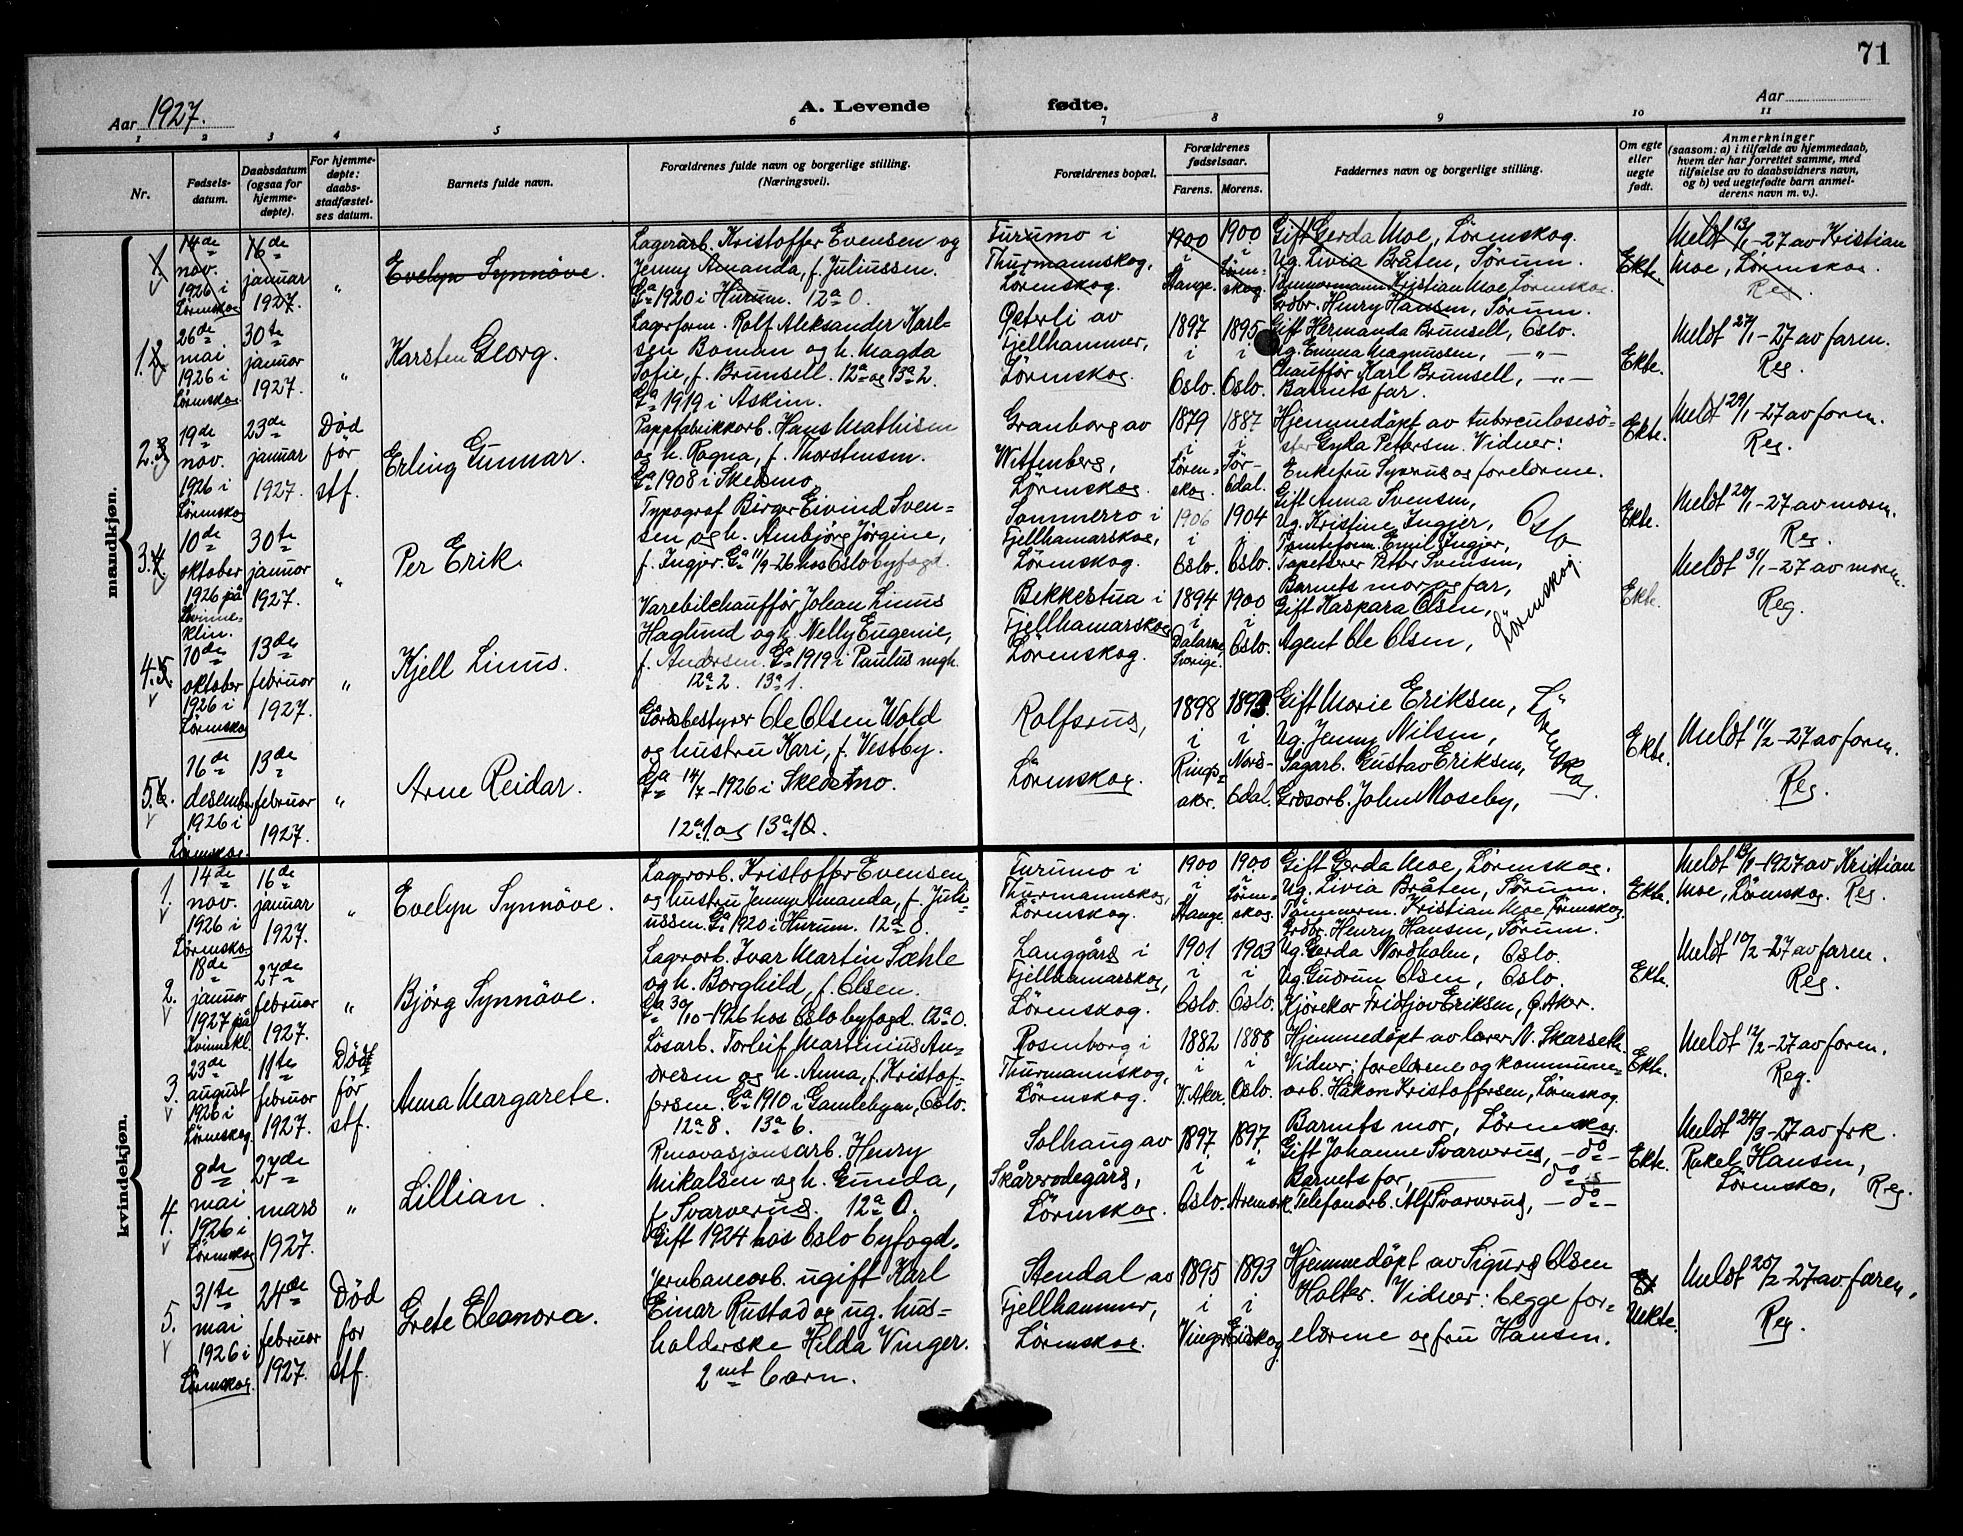 71
Aar 1927.
A. Levende fødte.
Aar
1 2 3 4 5 6 7 8 9 10 11
Nr.
Fødsels-
datum.
Daabsdatum
(ogsaa for
hjemme-
døpte).
For hjemme-
døpte:
daabs-
stadfæstel-
ses datum.
Barnets fulde navn.
Forældrenes fulde navn og borgerlige stilling.
(Næringsvei).
Forældrenes bopæl.
Forældrenes
fødselsaar.
Farens. Morens.
Faddernes navn og borgerlige stilling.
Om egte
eller
uegte
født.
Anmerkninger
(saasom: a) i tilfælde av hjemmedaab,
hvem der har forrettet samme, med
tilføielse av to daabsvidners navn,
og b) ved uegtefødte barn anmel-
derens navn m. v.).
mandkjøn.
1.
14de
nov.
1926 i
Lörenskog
16de
januar
1927.
"
Evelyn Synnöve.
Lagerarb. Kristoffer Evensen og
Jenny Amanda, f. Juliussen.
Ga 1920 i Hurum. 12a 0.
Furumo i
Thurmannskog,
Lörenskog.
1900
i
Stange.
1900
i
Lören-
skog.
Gift Gerda Moe, Lörenskog.
Ug. Livia Bråten, Sörum.
Tömmermann Kristian Moe, Lörenskog.
Grdbr. Henry Hansen, Sörum.
Ekte.
Meldt 13/1-27 av Kristian
Moe, Lörenskog.
Reg.
1. 2
26de
mai
1926 i
Lörenskog
30te
januar
1927.
"
Karsten Georg.
Lagerform. Rolf Aleksander Karl-
sen Boman og h. Magda
Sofie, f. Brunsell. 12a og 13a 2.
Ga 1919 i Askim.
Österli av
Fjellhammer,
Lörenskog.
1897
i
Oslo.
1895
i
Oslo.
Gift Hermanda Brunsell, Oslo.
Ug. Emma Magnussen, —"—
Chauffør Karl Brunsell, —"—
Barnets far.
Ekte.
Meldt 27/1-27 av faren.
Reg.
2. 3
19de
nov.
1926 i
Lörenskog
23de
januar
1927.
Död
för
stf.
Erling Gunnar.
Pappfabrikkarb. Hans Mathisen
og h. Ragna, f. Thorstensen.
Ga 1908 i Skedsmo.
Granborg av
Wittenberg,
Lörenskog.
1879
i
Lören-
skog.
1887
i
Sör-
Odal.
Hjemmedöpt av tuberculosesö-
ster Gyda Pettersen. Vidner:
Enkefru Syverus og foreldrene.
Ekte.
Meldt 29/1-27 av faren.
Reg.
3. 4
10de
oktober
1926 på
Kvinne-
klin.
30te
januar
1927.
"
Per Erik
Typograf Birger Eivind Sven-
sen og h. Ambjörg Jörgine,
f. Ingjer. Ga 11/9-26 hos Oslo byfogd.
Sommerro i
Fjellhamarskog,
Lörenskog.
1906
i
Oslo.
1904
i
Oslo.
Gift Anna Svensen,
Ug. Kristine Ingjer,
Tomteform. Emil Ingjer,
Tapetserer Peter Svensen,
Oslo
Ekte.
Meldt 20/1-27 av moren.
Reg.
4. 5.
10de
oktober
1926 i
Lörenskog
13de
februar
1927.
"
Kjell Linus.
Varebilchauffør Johan Linus
Haglund og h. Nelly Eugenie,
f. Andersen. Ga 1919 i Paulus mgh.
12a 2. 13a 1.
Bekkestua i
Fjellhamarskog
Lörenskog.
1894
i
Dalarne,
Sverige.
1900
i
Oslo.
Barnets mor og far,
Gift Kaspara Olsen,
Agent Ole Olsen,
Lörenskog.
Ekte.
Meldt 31/1-27 av moren.
Reg.
5. 6.
16de
desember
1926 i
Lörenskog.
13de
februar
1927.
"
Arne Reidar.
Gårdsbestyrer Ole Olsen Wold
og hustru Kari, f. Vestby.
Ga 14/7-1926 i Skedsmo.
12a 1. og 13a 0.
Rolfsrus,
Lörenskog.
1898
i
Rings-
aker.
1893.
i
Nord-
Odal.
Gift Marie Eriksen,
Ug. Jenny Nilsen,
Sagarb. Gustav Eriksen,
Grdsarb. John Moseby,
Lörenskog
Ekte.
Meldt 11/2-27 av faren.
Reg.
kvindekjøn.
1.
14de
nov.
1926 i
Lörenskog
16de
januar
1927.
"
Evelyn Synnöve.
Lagerarb. Kristoffer Evensen
og hustru Jenny Amanda, f. Juli-
ussen. Ga 1920 i Hurum. 12a 0.
Furumo i
Thurmannskog,
Lörenskog.
1900
i
Stange.
1900
i
Lören-
skog.
Gift Gerda Moe, Lörenskog.
Ug. Livia Bråten, Sörum.
Tömmerm. Kristian Moe, Lörenskog
Grdbr. Henry Hansen, Sörum.
Ekte.
Meldt 13/1-1927 av Kristian
Moe, Lörenskog. Reg.
2.
18de
januar
1927 på
Kvinnekl.
27de
februar
1927.
"
Björg Synnöve.
Lagerarb. Ivar Martin Sæhle
og h. Borghild, f. Olsen.
Ga 30/10-1926 hos Oslo byfogd. 12a 0.
Langgård i
Fjellhamarskog,
Lörenskog.
1901
i
Oslo.
1903
i
Oslo.
Ug. Gerda Nordholm, Oslo.
Ug. Gudrun Olsen, Oslo.
Kjörekar Fridtjov Eriksen, Ö. Aker.
Ekte.
Meldt 10/2-27 av faren.
Reg.
3.
23de
august
1926 i
Lörenskog.
11te
februar
1927.
Död
för
stf.
Anna Margarete.
Losarb. Torleif Martinius An-
dresen og h. Anna, f. Kristof-
fersen. Ga 1910 i Gamlebyen, Oslo.
12a 8. 13a 6.
Rosenborg i
Thurmannskog,
Lörenskog.
1882
i
V. Aker.
1888
i
Oslo.
Hjemmedöpt av lærer N. Skarseth.
Vidner: foreldrene og kommune-
arb. Håkon Kristoffersen, Lörenskog.
Ekte.
Meldt 12/2-27 av faren.
Reg.
4.
8de
mai
1926 i
Lörenskog
27de
mars
1927.
"
Lillian
Renovasjonsarb. Henry
Mikalsen og h. Gunda,
f. Svarverus. 12a 0.
Gift 1924 hos Oslo byfogd.
Solhaug av
Skårerødegård,
Lörenskog.
1897
i
Oslo.
1897
i
Aremark.
Barnets mor, Lörenskog.
Gift Johanne Svarverus, —do—
Barnets far, — do —
Telefonarb. Alf Svarverus, —do—
Ekte.
Meldt 24/3-27 av frk.
Rakel Hansen,
Lörenskog, Reg.
5.
31te
mai
1926 i
Lörenskog.
24de
februar
1927.
Död
for
stf.
Grete Eleanora.
Jernbanearb. ugift Karl
Einar Rustad og ug. hus-
holderske Hilda Vinger.
2net barn.
Stendal av
Fjellhammer,
Lörenskog.
1895
i
Vinger
1893
i
Eidskog
Hjemmedöpt av Sigurd Olsen
Holter. Vidner: begge for-
eldrene og fru Hansen.
Uekte.
Meldt 25/2-27 av faren.
Reg.